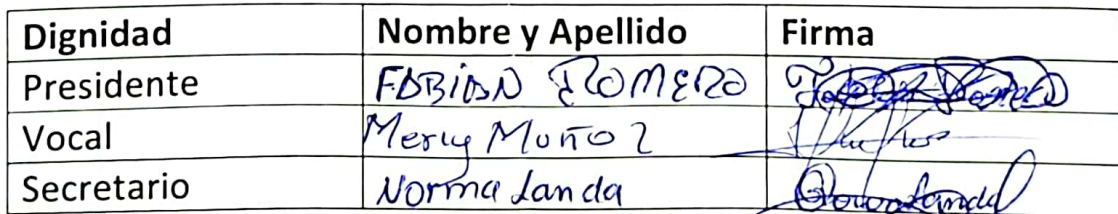 Dignidad Nombre y Apellido Firma
Presidente FABIAN ROMERO
Vocal Mercy Muñoz
Secretario Norma Landa